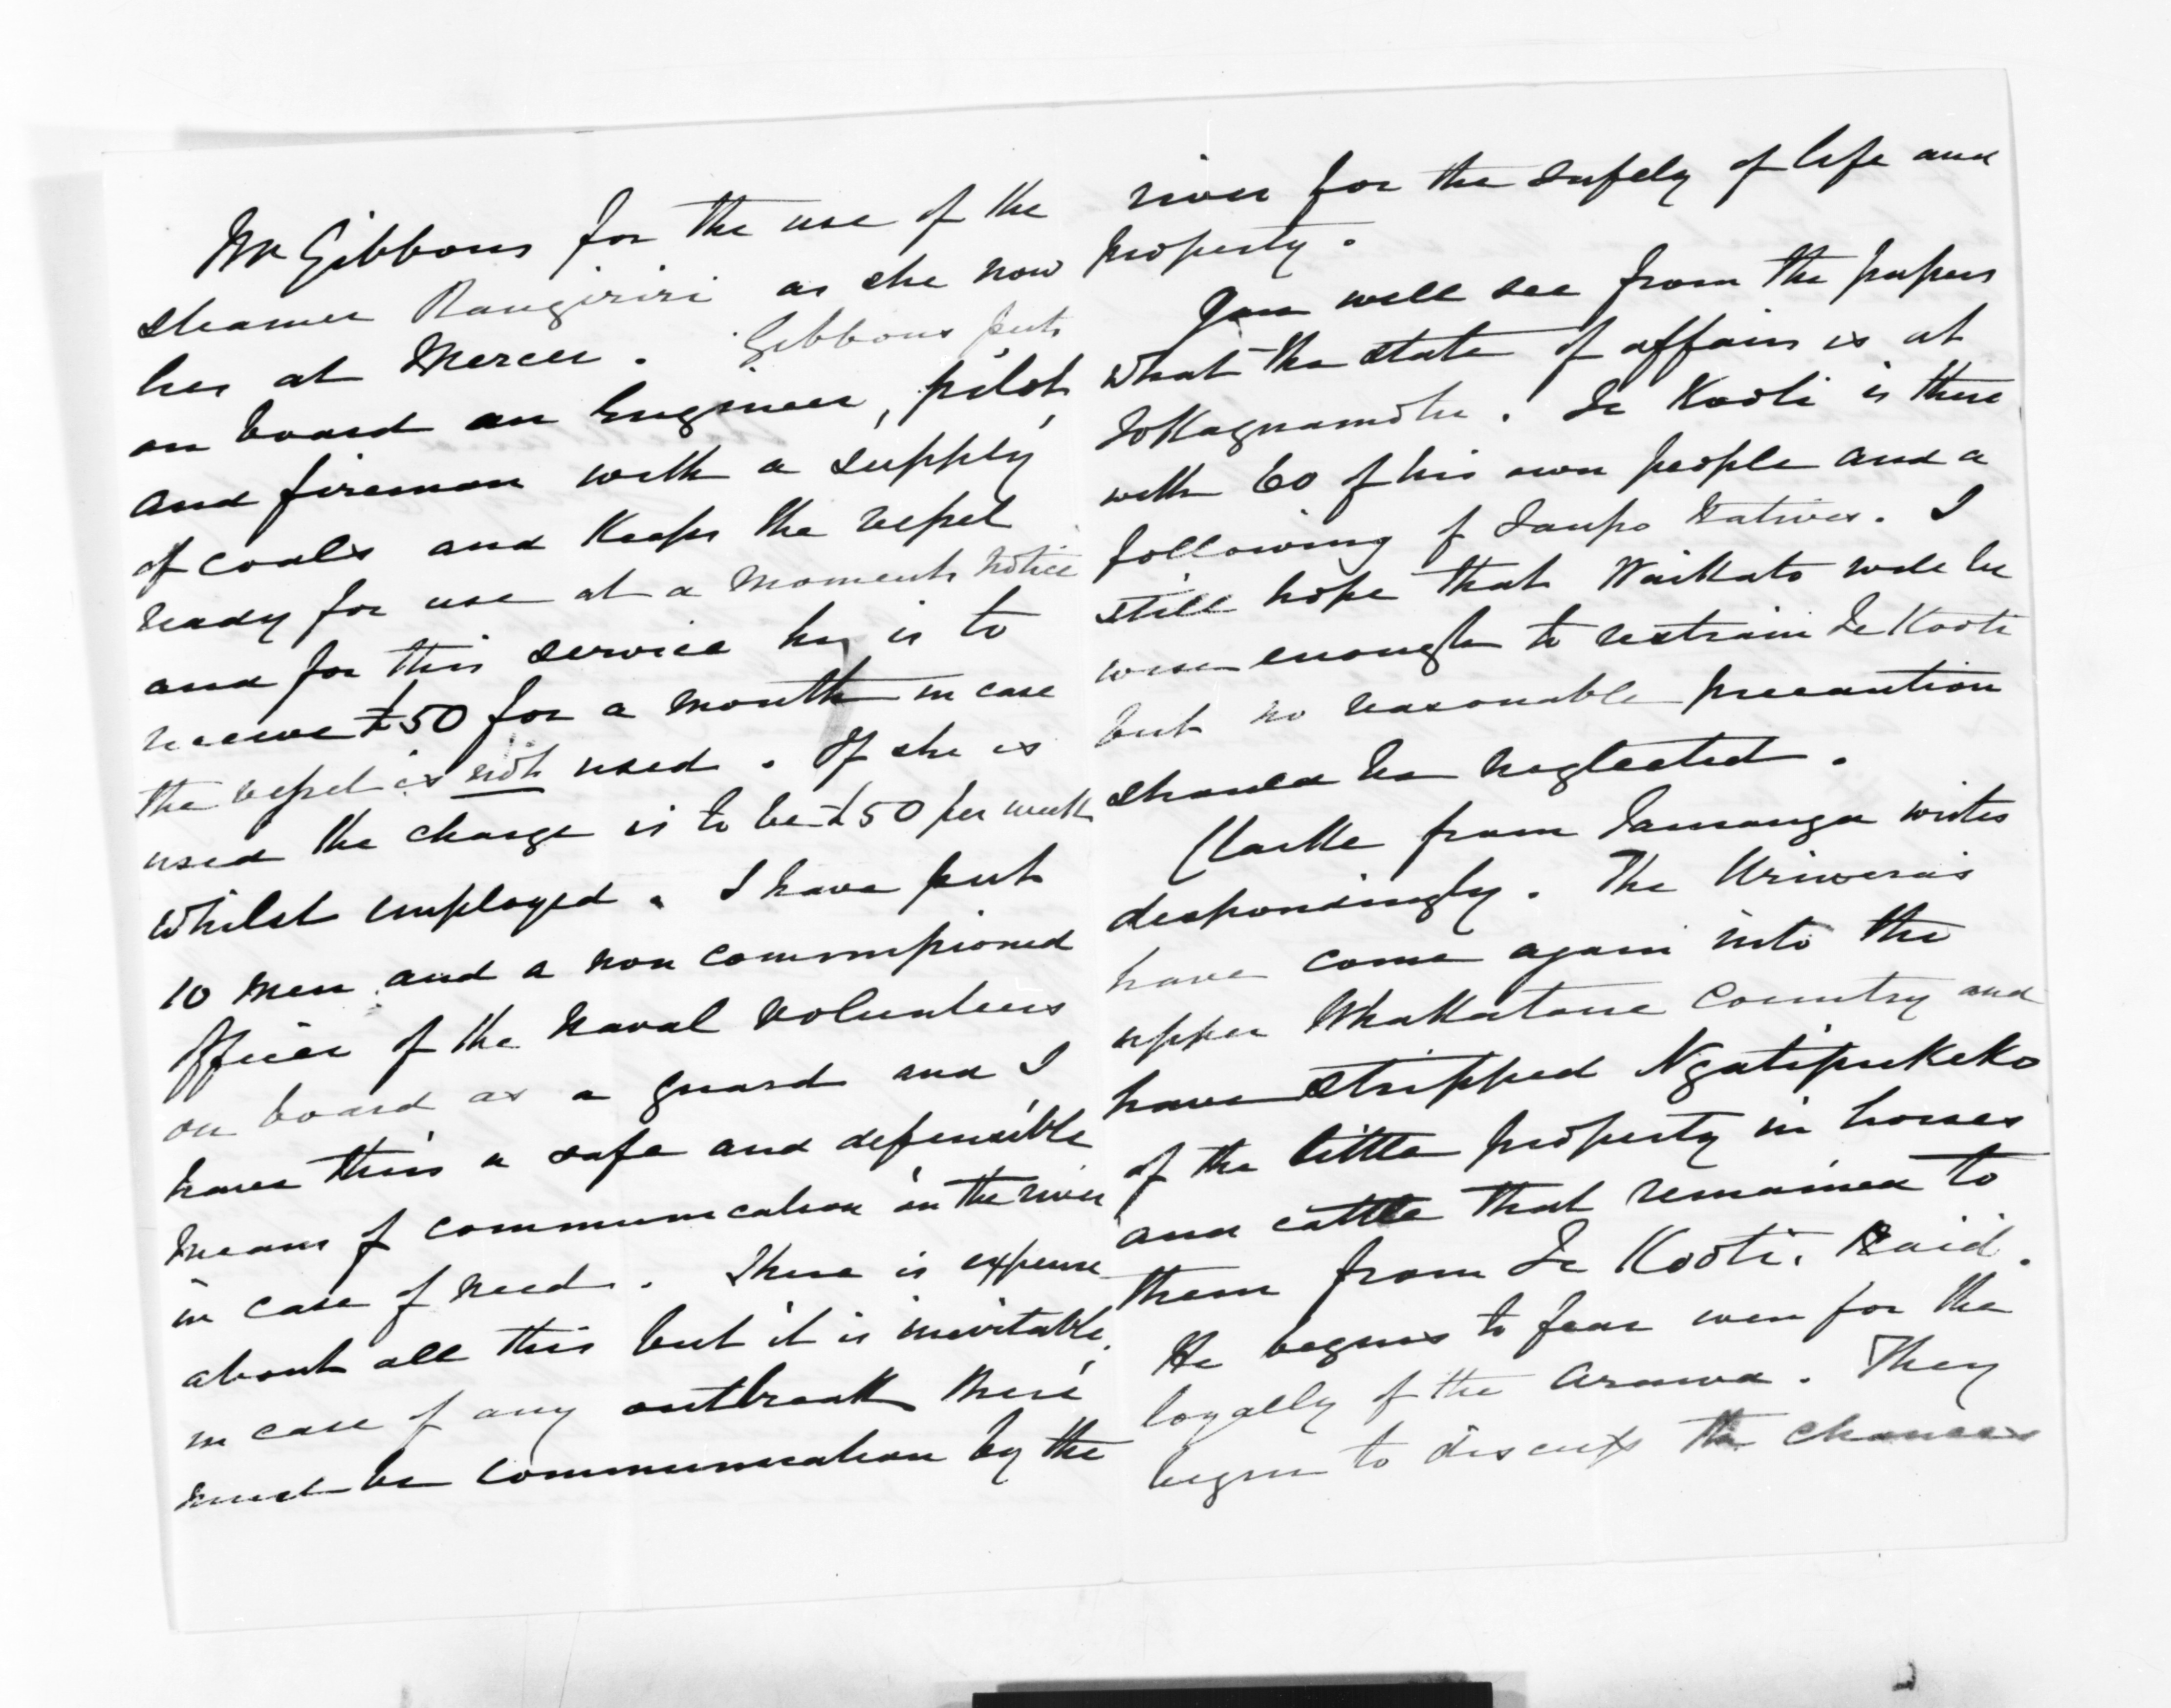 Mr Gibbons for the use of the
steamer Rangiriri as she now
lies at Mercer. Gibbons puts
on board an Engineer, pilot,
and fireman with a supply
of coals and keeps the vessel
ready for use at a moments notice
and for this service he is to
receive £50 for a month in case
the vessel is not used. If she is
used the charge is to be £50 per week
whilst employed. I have put
10 men and a non commissioned
Officer of the Naval Volunteers
on board as a guard and I
have thus a safe and defensible
means of communication on the river
in case of need. There is expense
about all this but it is inevitable.
in case of any outbreak there
must be communication by the
river for the safety of life and
property.
You will see from the papers
what the state of affairs is at
Tokangamutu. Te Kooti is there
with 60 of his own people and a
following of Taupo Natives. I
still hope that Waikato will be
wise enough to restrain Te Kooti
but no reasonable precaution
should be neglected.
Clarke from Tauranga writes
despondingly. The Uriwera's
have come again into the
upper Whakatane Country and
have stripped Ngatipukeko
of the little property in horses
and cattle that remained to
them from Te Kooti. Raid.
He begins to fear even for the
loyalty of the Arawa. They
begin to discuss the chances